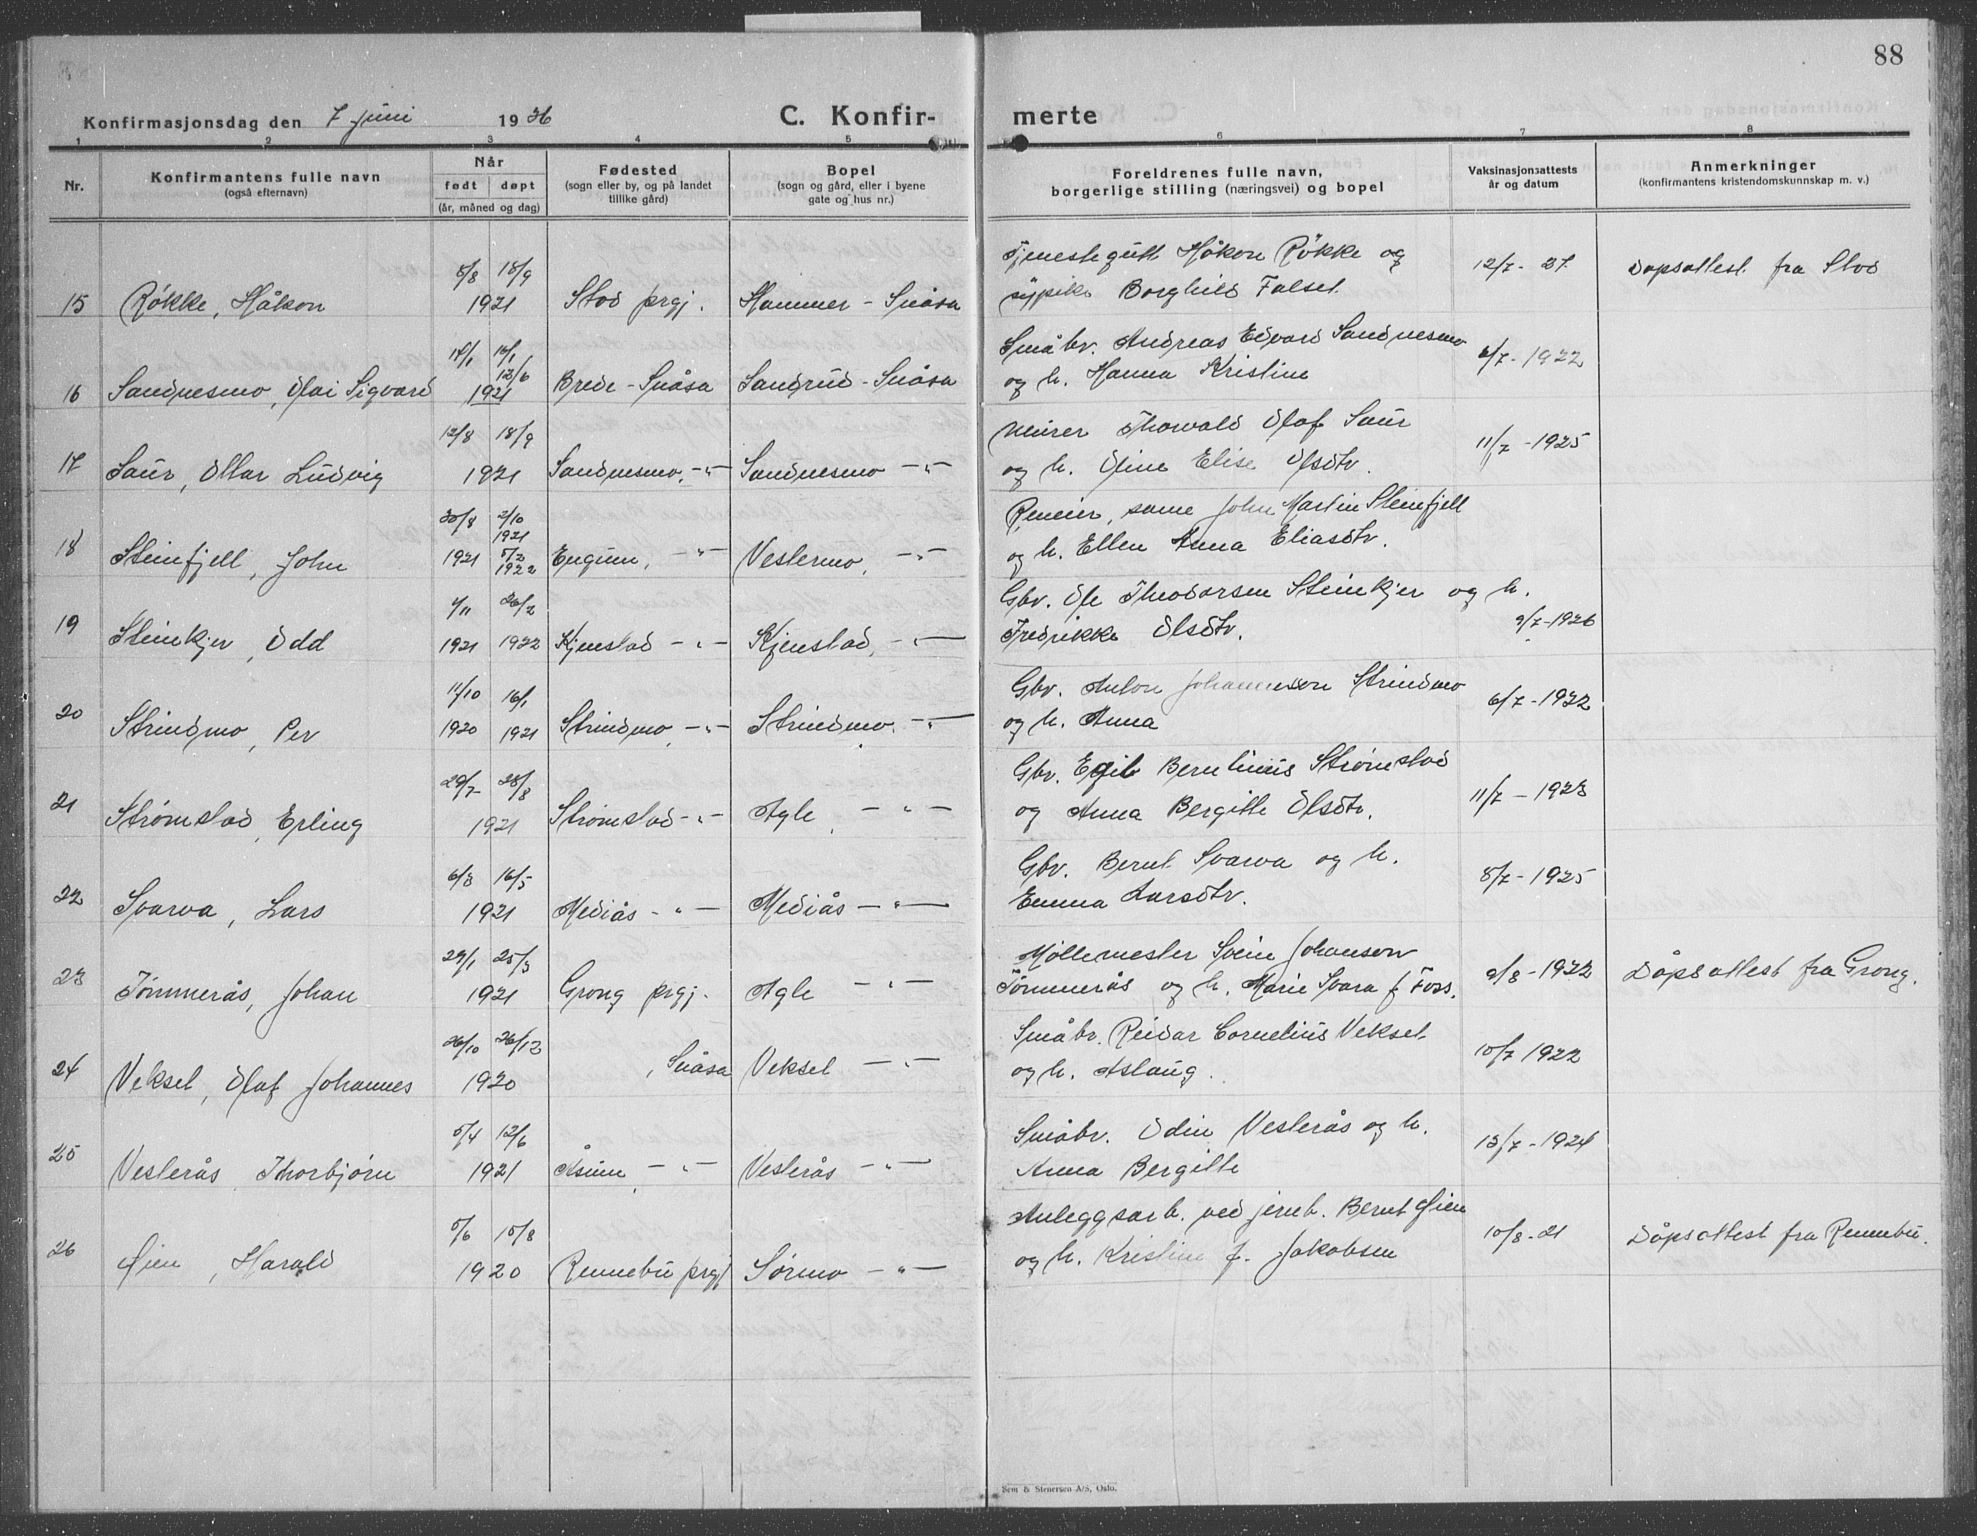 88
Konfirmasjonsdag den 7 juni 1936 C. Konfir- merte
1 2 3 4 5 6 7 8
Nr. Konfirmantens fulle navn (også efternavn) Når født døpt (år, måned og dag) Fødested (sogn eller by, og på landet tillike gård) Bopel (sogn og gård, eller i byene gate og hus nr.) Foreldrenes fulle navn, borgerlige stilling (næringsvei) og bopel Vaksinasjonsattests år og datum Anmerkninger (konfirmantens kristendomskunnskap m. v.)
5/8 18/9 Tjenestegutt Håkon Røkke og 12/7- 27. Dåpsattest fra Stod
15 Røkke, Håkon 1921 Stod prgj. Hammer - Snåsa sypike Borghild Falset
17/1 12/6 Småbr. Andreas Edvard Sandnesmo 6/7-1922
16 Sandnesmo, Olai Sigvard 1921 Brede - Snåsa Sandrud - Snåsa og h. Hanna Kristine
12/8 18/9 Murer Thorvald Olaf Saur 11/7-1925
17 Saur, Ottar Ludvig 1921 Sandnesmo, -"- Sandnesmo -"- og h. Oline Elise Olsdtr.
30/8 2/10 1921 Reneier, same John Martin Steinfjell
18 Steinfjell, John 1921 5/3 1922 Engum, -"- Vestermo, -"- og h. Ellen Anna Eliasdtr.
1/11 26/2 Gbr. Ole Theodorsen Steinkjer og h.
19 Steinkjer, Odd 1921 1922 Kjenstad -"- Kjenstad, -"- Fredrikke Olsdtr. 9/7-1926
11/10 16/1 Gbr. Anton Johannesen Strindmo 6/7-1922
20 Strindmo, Per 1920 1921 Strindmo -"- Strindmo. -"- og h. Anna
29/7 28/8 Gbr. Egil Berntinius Strømstad
21 Strømstad, Erling 1921 Strømstad -"- Agle -"- og Anna Bergitte Olsdtr. 11/7-1923
6/3 16/5 Gbr. Bernt Svarva og h. 8/7-1925
22 Svarva, Lars 1921 Mediås -"- Mediås -"- Emma Larsdtr.
29/1 25/3 Møllemester Svein Johansen
23 Tømmerås, Johan 1921 Grong prgj. Agle -"- Tømmerås og h. Marie Svara f. Foss. 9/8-1922 Dåpsattest fra Grong.
26/10 26/12 Småbr. Reidar Cornelius Veksel
24 Veksel, Olaf Johannes 1920 , Snåsa Veksel -"- og h. Aslaug. 10/7 1922
5/4 12/6 Småbr. Odin Vesterås og h. 13/7-1924
25 Vesterås Thorbjørn 1921 Åsum, -"- Vesterås -"- Anna Bergitte
5/6 15/8 Anleggsarb. ved jernb. Bernt Øien 10/8-21 Dåpsattest fra Rennebu.
26 Øien, Harald 1920 Rennebu prgj Sørmo -"- og h. Kristine f. Jakobsen
Sem & Stenersen A/S, Oslo.